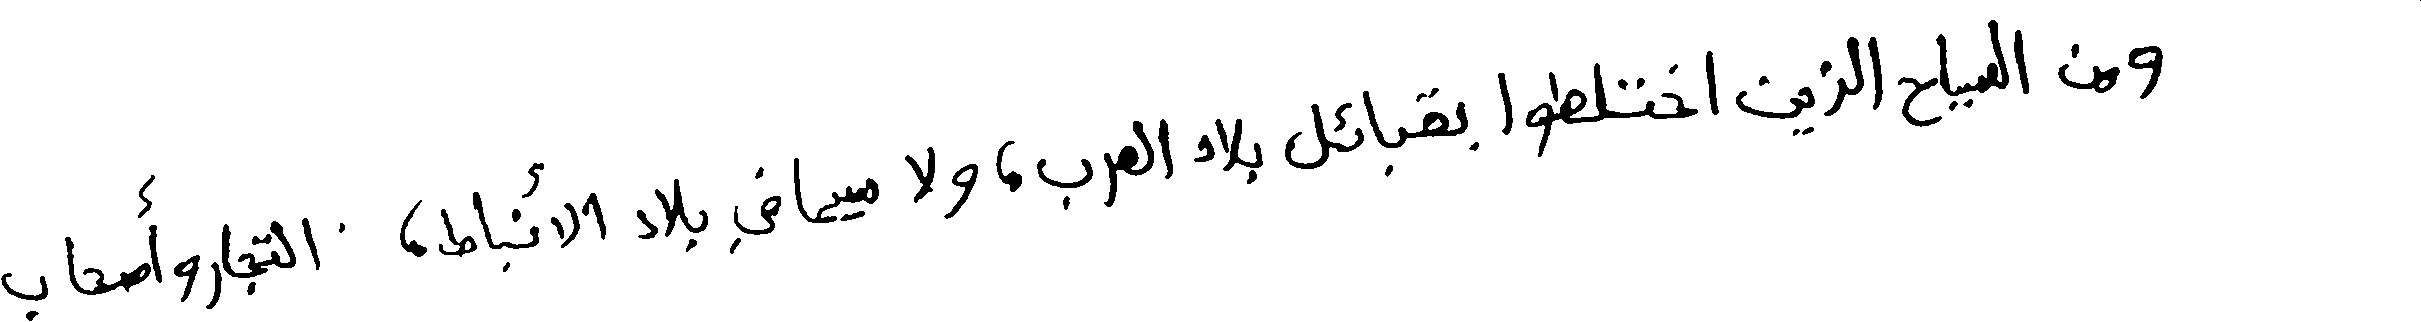 ومن السياح الذين اختلطوا بقبائل بلاد العرب، ولا سيما في بلاد الأنباط، التجار وأصحاب